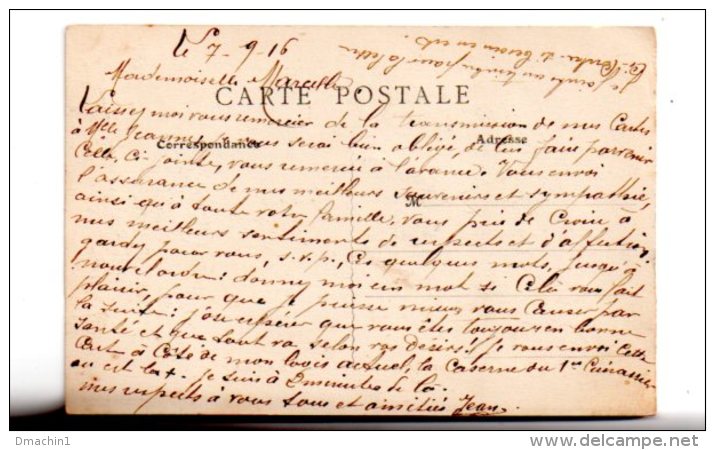 le 7-9-16
Mademoiselle Marcelle
Je joins un timbre pour la lettre
CARTE POSTALE
Laissez moi vous remercier de la transmission de mes Cartes
à Mlle Jeanne, je vous serai bien obligé, de lui faire parvenir
Correspondance
Adresse
Celle, Ci-jointe, vous remercie à l'avance. Vous envoi
l'assurance de mes meilleurs souvenirs et sympathie,
M
ainsi qu'à toute votre famille, vous prie de Croire à
mes meilleurs sentiments de respects et d'affection.
gardez pour vous, s.v.p., Ces quelques mots, jusqu'à
nouvel ordre: donnez moi un mot si Cela vous fait
plaisir, pour que je puisse mieux vous Causer par
la suite: j'ose espérer que vous êtes toujours en bonne
santé et que tout va selon vos désirs! Je vous envoi Cette
Carte à Côté de mon logis actuel, la Caserne du 1er Cuirassier
ou est la +. Je suis à 2 minutes de là.
mes respects à vous tous et amitiés Jean.
Dmachin1
delcampe.net